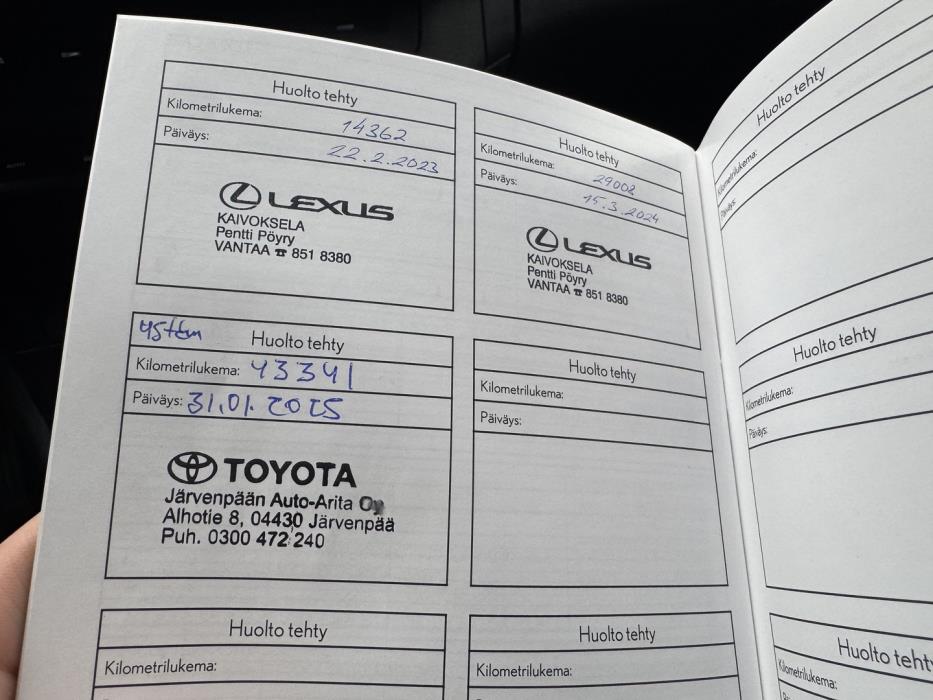 Huolto tehty
Kilometrilukema: 14362
Päiväys: 22.2.2023
LEXUS
KAIVOKSELA
Pentti Pöyry
VANTAA ☎ 851 8380
Huolto tehty
Kilometrilukema: 29008
Päiväys: 15.3.2024
LEXUS
KAIVOKSELA
Pentti Pöyry
VANTAA ☎ 851 8380
45tkm Huolto tehty
Kilometrilukema: 43341
Päiväys: 31.01.2025
TOYOTA
Järvenpään Auto-Arita Oy
Alhotie 8, 04430 Järvenpää
Puh. 0300 472 240
Huolto tehty
Kilometrilukema:
Päiväys:
Huolto tehty
Kilometrilukema:
Huolto tehty
Kilometrilukema:
Huolto tehty
Kilometrilukema:
Päiväys:
Huolto tehty
Kilometrilukema:
Päiväys:
Huolto teht
Kilometrilukema: